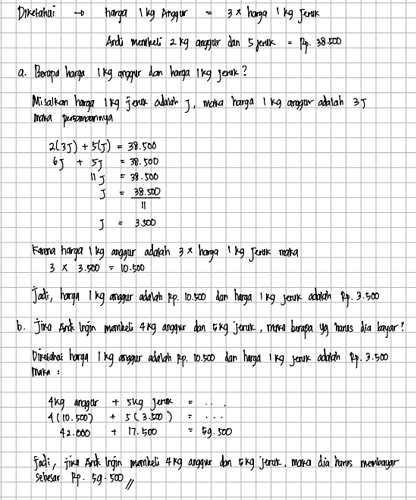 Diketahui → harga 1 kg Anggur = 3 x harga 1 kg Jeruk
Andi membeli 2 kg anggur dan 5 jeruk = Rp. 38.500
a. Berapa harga 1 kg anggur dan harga 1 kg jeruk?
Misalkan harga 1 kg jeruk adalah J, maka harga 1 kg anggur adalah 3J
maka persamaannya
2(3J) + 5(J) = 38.500
6J + 5J = 38.500
11J = 38.500
J = 38.500
11
J = 3.500
Karena harga 1 kg anggur adalah 3 x harga 1 kg Jeruk maka
3 x 3.500 = 10.500
Jadi, harga 1 kg anggur adalah Rp. 10.500 dan harga 1 kg jeruk adalah Rp. 3.500
b. Jika Andi ingin membeli 4 kg anggur dan 5 kg jeruk, maka berapa yg harus dia bayar?
Diketahui harga 1 kg anggur adalah Rp. 10.500 dan harga 1 kg jeruk adalah Rp. 3.500
maka :
4kg anggur + 5kg jeruk = ...
4(10.500) + 5(3.500) = ...
42.000 + 17.500 = 59.500
Jadi, jika Andi ingin membeli 4 kg anggur dan 5 kg jeruk, maka dia harus membayar
sebesar Rp. 59.500 //